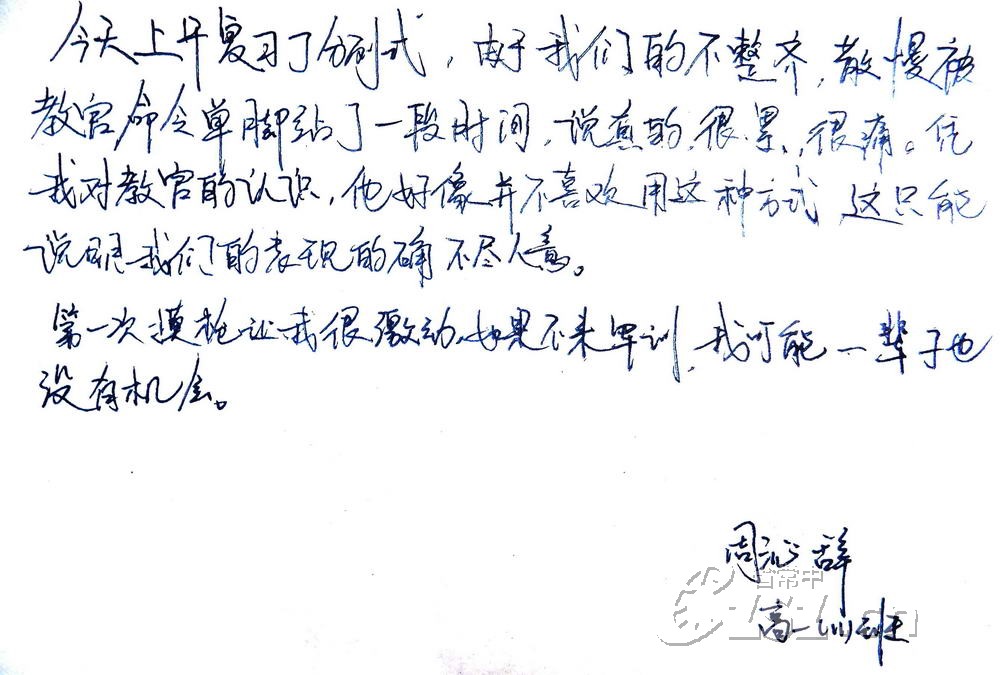 今天上午复习了分列式，由于我们的不整齐，散慢被
教官命令单脚站了一段时间，说真的，很累，很痛。凭
我对教官的认识，他好像并不喜欢用这种方式，这只能
说明我们的表现的确不尽人意。
第一次摸枪让我很激动，如果不来军训，我可能一辈子也
没有机会。
周沁辞
高一(11)班